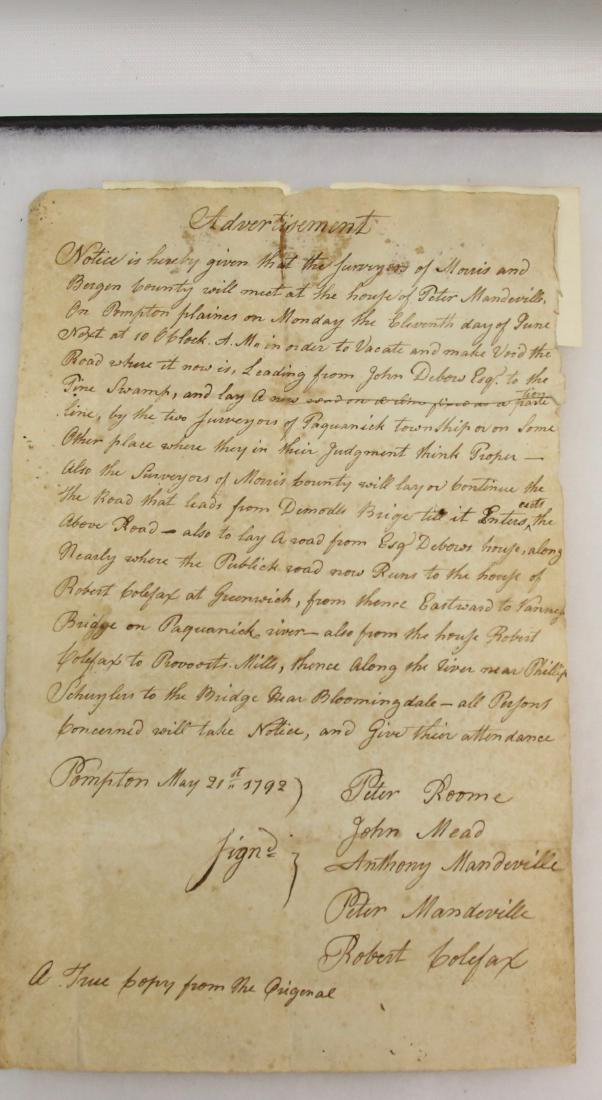 Advertisement
Notice is hereby given that the Surveyors of Morris and
Bergen County will meet at the house of Peter Mandeville.
On Pompton plaines on Monday the Eleventh day of June
Next at 10 O'Clock. A. Mo. in order to Vacate and make Void the
Road where it now is, Leading from John Debow Esqr. to the
Pine Swamp, and lay A new road on a line fixed as a partition
line, by the two Surveyors of Paquanick township or on some
Other place where they in their Judgment think Proper —
Also the Surveyors of Morris County will lay or Continue the
the Road that leads from Demodts Brige till it Enters, the
Above Road — also to lay A road from Esqr Debows house, along
Nearly where the Publick road now Runs to the house of
Robert Colefax at Greenwich, from thence Eastward to
Bridge on Paquanick river — also from the house Robert
Colefax to Provoosts Mills, thence Along the river near Phillip
Schuylers to the Bridge Near Bloomingdale — all Persons
Concerned will take Notice, and Give their attendance
Pompton May 21st 1792 )
Signd. }
Peter Roome
John Mead
Anthony Mandeville
Peter Mandeville
Robert Colefax
A True Copy from the Origenal